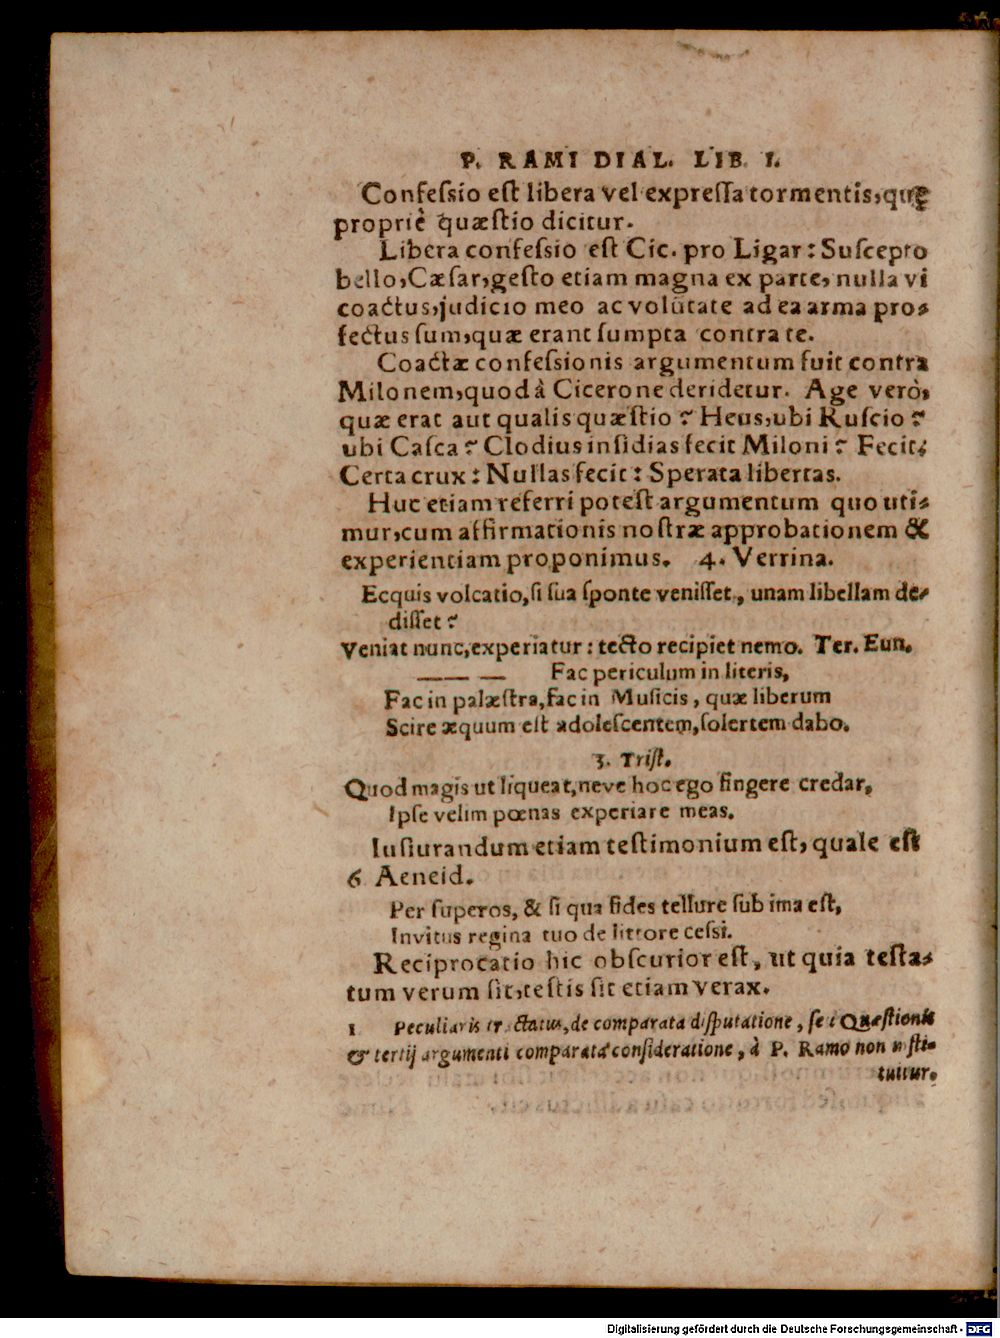 P. RAMI DIAL. LIB. I.
Confeſsio eſt libera vel expreſſa tormentis, quę
propriè quæſtio dicitur.
Libera confeſsio eſt Cic. pro Ligar: Suſcepto
bello, Cæſar, geſto etiam magna ex parte, nulla vi
coactus, judicio meo ac volūtate ad ea arma pro-
fectus ſum, quæ erant ſumpta contra te.
Coactæ confeſsionis argumentum fuit contra
Milonem, quod à Cicerone deridetur. Age verò,
quæ erat aut qualis quæſtio? Heus, ubi Ruſcio?
ubi Caſca? Clodius inſidias fecit Miloni? Fecit:
Certa crux: Nullas fecit: Sperata libertas.
Huc etiam referri poteſt argumentum quo uti-
mur, cum affirmationis noſtræ approbationem &
experientiam proponimus. 4. Verrina.
Ecquis volcatio, ſi ſua ſponte veniſſet, unam libellam de-
diſſet?
Veniat nunc, experiatur: tecto recipiet nemo. Ter. Eun.
——— — Fac periculum in literis,
Fac in palæſtra, fac in Muſicis, quæ liberum
Scire æquum eſt adoleſcentem, ſolertem dabo.
3. Triſt.
Quod magis ut liqueat, neve hoc ego fingere credar,
Ipſe velim pœnas experiare meas.
Iuſiurandum etiam teſtimonium eſt, quale eſt
6 Aeneid.
Per ſuperos, & ſi qua fides tellure ſub ima eſt,
Invitus regina tuo de littore ceſsi.
Reciprocatio hic obſcurior eſt, ut quia teſta-
tum verum ſit, teſtis ſit etiam verax.
1 Peculiaris tractatus, de comparata diſputatione, ſet Quæſtionis
& tertij argumenti comparata conſideratione, à P. Ramo non inſti-
tuitur.
Digitalisierung gefördert durch die Deutsche Forschungsgemeinschaft - DFG